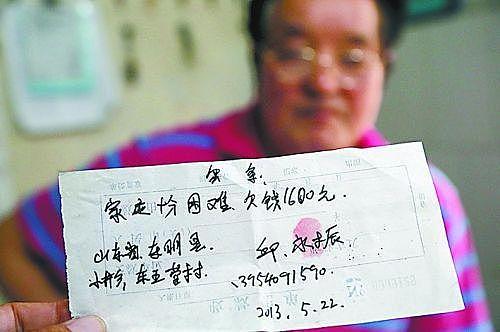 欠条:
家庭十分困难 欠钱1600元.
山东省 东明县
小井乡, 东王营村.
邱
13954091590.
2013. 5. 22.